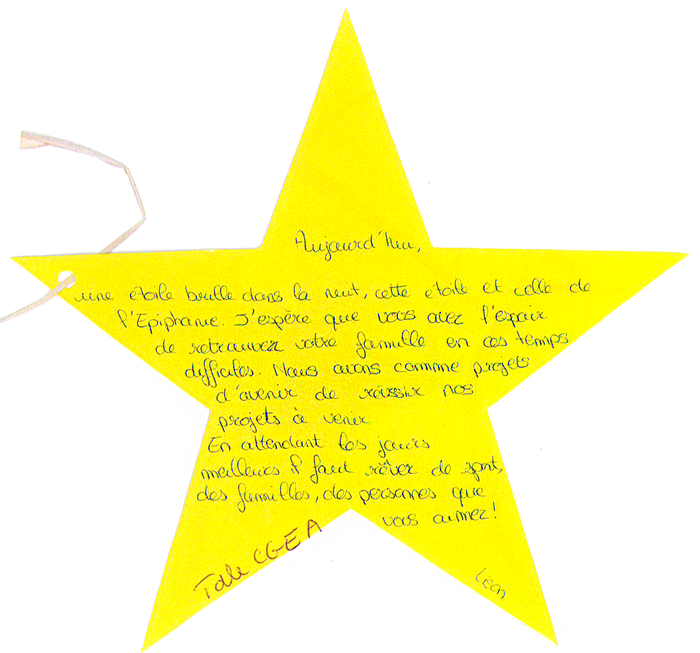 Aujourd'hui,
une étoile brille dans la nuit, cette etoile et celle de
l'Epiphanie. J'espère que vous avez l'espoir
de retrouver votre famille en ces temps
difficiles. Nous avons comme projets
d'avenir de réussir nos
projets à venir
En attendant les jours
meilleurs il faut rêver de sport,
des familles, des personnes que
vous aimez!
Tale CGEA
Léon